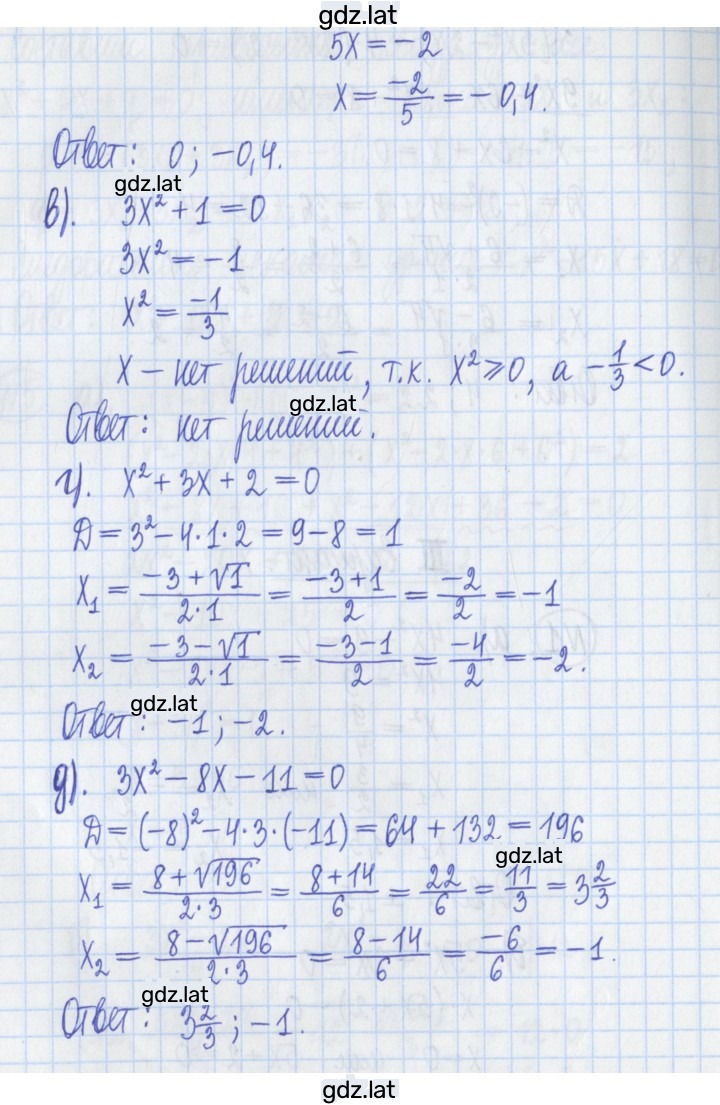 gdz.lat
5x = -2
x = -2/5 = -0,4.
Ответ: 0; -0,4.
gdz.lat
в). 3x² + 1 = 0
3x² = -1
x² = -1/3
x — нет решений, т.к. x² ⩾ 0, а -1/3 < 0.
gdz.lat
Ответ: нет решений.
г). x² + 3x + 2 = 0
Д = 3² - 4·1·2 = 9 - 8 = 1
x₁ = (-3 + √1)/(2·1) = (-3 + 1)/2 = -2/2 = -1
x₂ = (-3 - √1)/(2·1) = (-3 - 1)/2 = -4/2 = -2.
gdz.lat
Ответ: -1; -2.
д). 3x² - 8x - 11 = 0
Д = (-8)² - 4·3·(-11) = 64 + 132 = 196
gdz.lat
x₁ = (8 + √196)/(2·3) = (8 + 14)/6 = 22/6 = 11/3 = 3 2/3
x₂ = (8 - √196)/(2·3) = (8 - 14)/6 = -6/6 = -1.
gdz.lat
Ответ: 3 2/3; -1.
gdz.lat